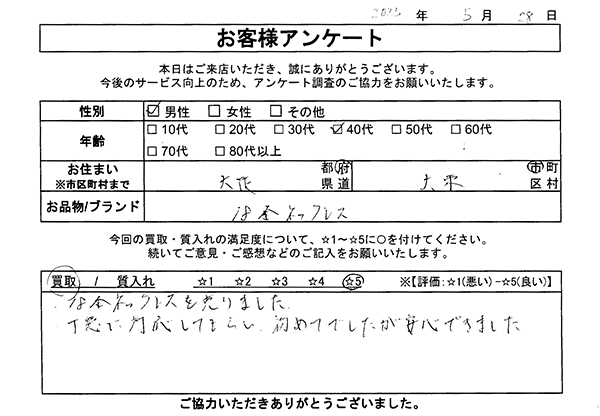 2023 年 5 月 28 日
お客様アンケート
本日はご来店いただき、誠にありがとうございます。
今後のサービス向上のため、アンケート調査のご協力をお願いいたします。
性別 ☑ 男性 □ 女性 □ その他
年齢 □ 10代 □ 20代 □ 30代 ☑ 40代 □ 50代 □ 60代
□ 70代 □ 80代以上
お住まい ※市区町村まで 大阪 都府県道 大東 市町区村
お品物/ブランド 18金ネックレス
今回の買取・質入れの満足度について、☆1～☆5に○を付けてください。
続いてご意見・ご感想などのご記入をお願いいたします。
買取 / 質入れ ☆1 ☆2 ☆3 ☆4 ☆5 ※【評価:☆1(悪い)-☆5(良い)】
18金ネックレスを売りました
丁寧に対応してもらい、初めてでしたが安心できました
ご協力いただきありがとうございました。